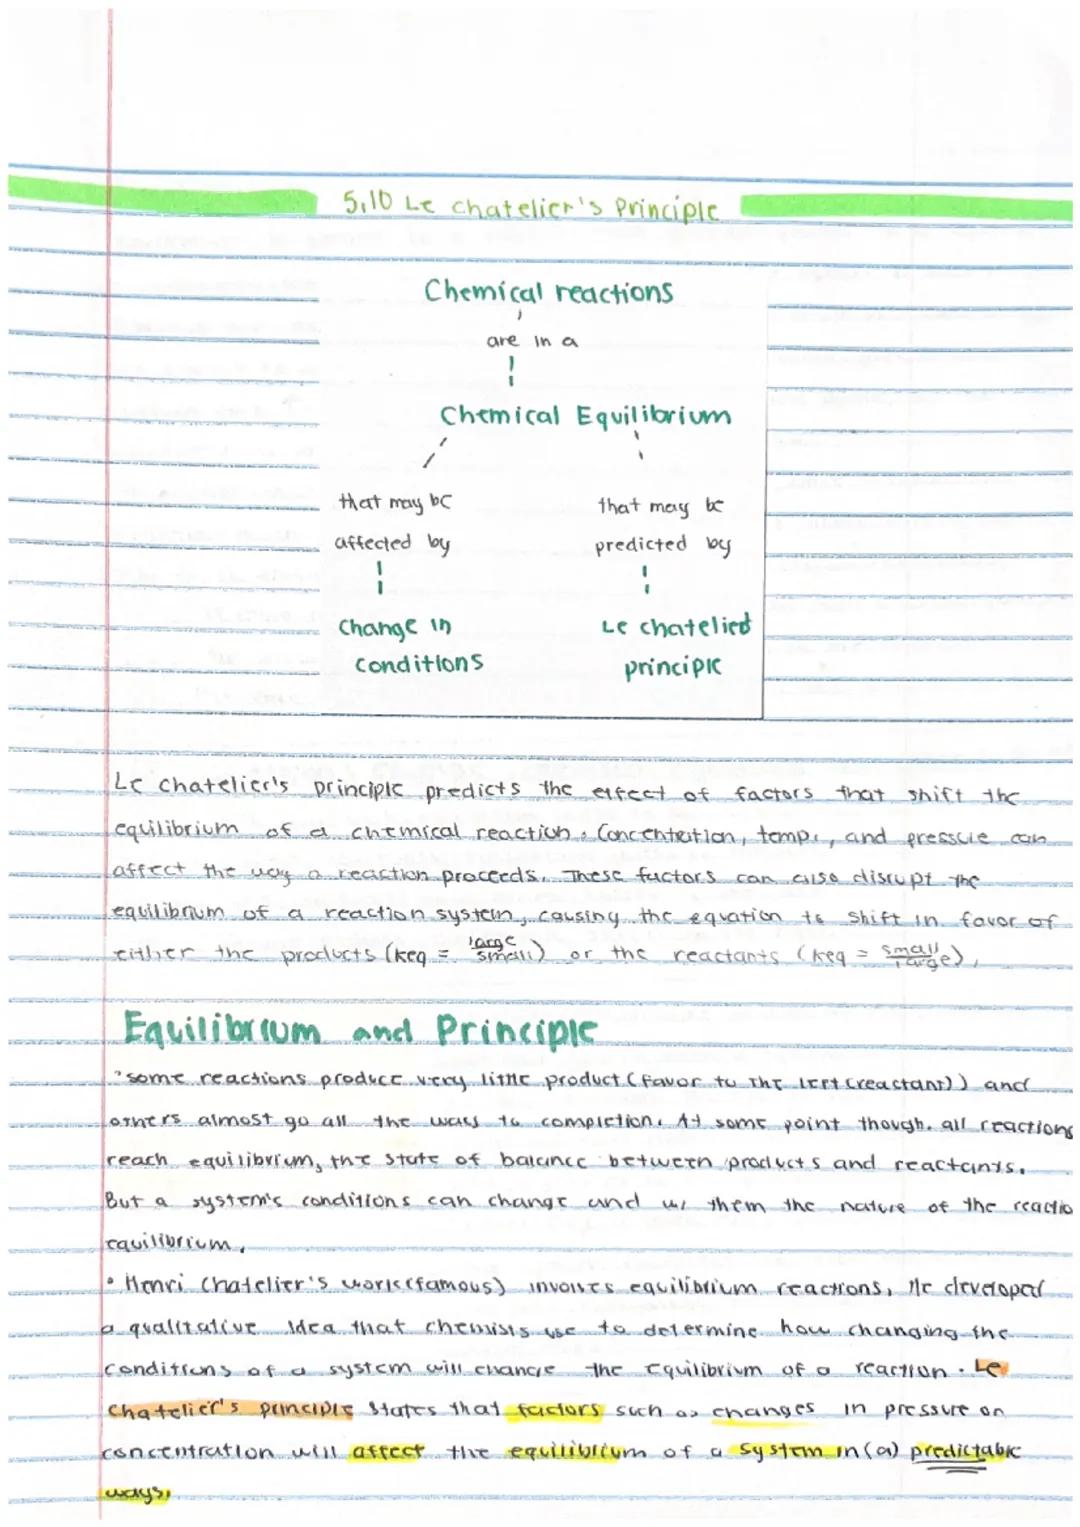 5.10 Le chatelier's Principle
Chemical reactions
are in a
Chemical Equilibrium
that may be that may be
affected by predicted by
change in Le chatelied
conditions principle
Le chatelier's principle predicts the effect of factors that shift the
equilibrium of a chemical reaction. Concentration, temp., and pressure can
affect the way a reaction proceeds. These factors can also disrupt the
equilibrium of a reaction system, causing the equation to shift in favor of
either the products (keq = large/small) or the reactants (keq = small/large).
Equilibrium and Principle
some reactions produce very little product (favor to the left (reactant)) and
others almost go all the way to completion. At some point though. all reactions
reach equilibrium, the state of balance between products and reactants.
But a system's conditions can change and w/ them the nature of the reactio
equilibrium.
• Henri Chatelier's work (famous) involves equilibrium reactions, He developed
a qualitative idea that chemists use to determine how changing the
conditions of a system will change the equilibrium of a reaction. Le
chatelier's principle states that factors such as changes in pressure or
concentration will affect the equilibrium of a system in (a) predictable
ways.